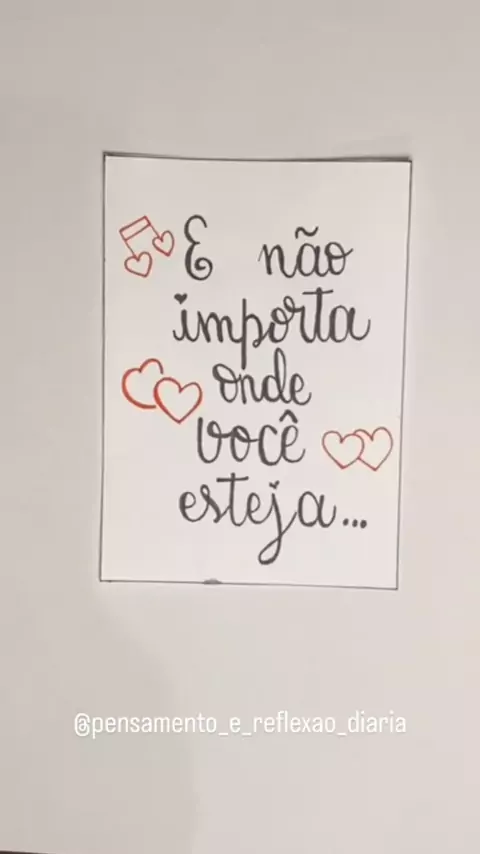 E não
importa
onde
você
esteja...
@pensamento_e_reflexao_diaria